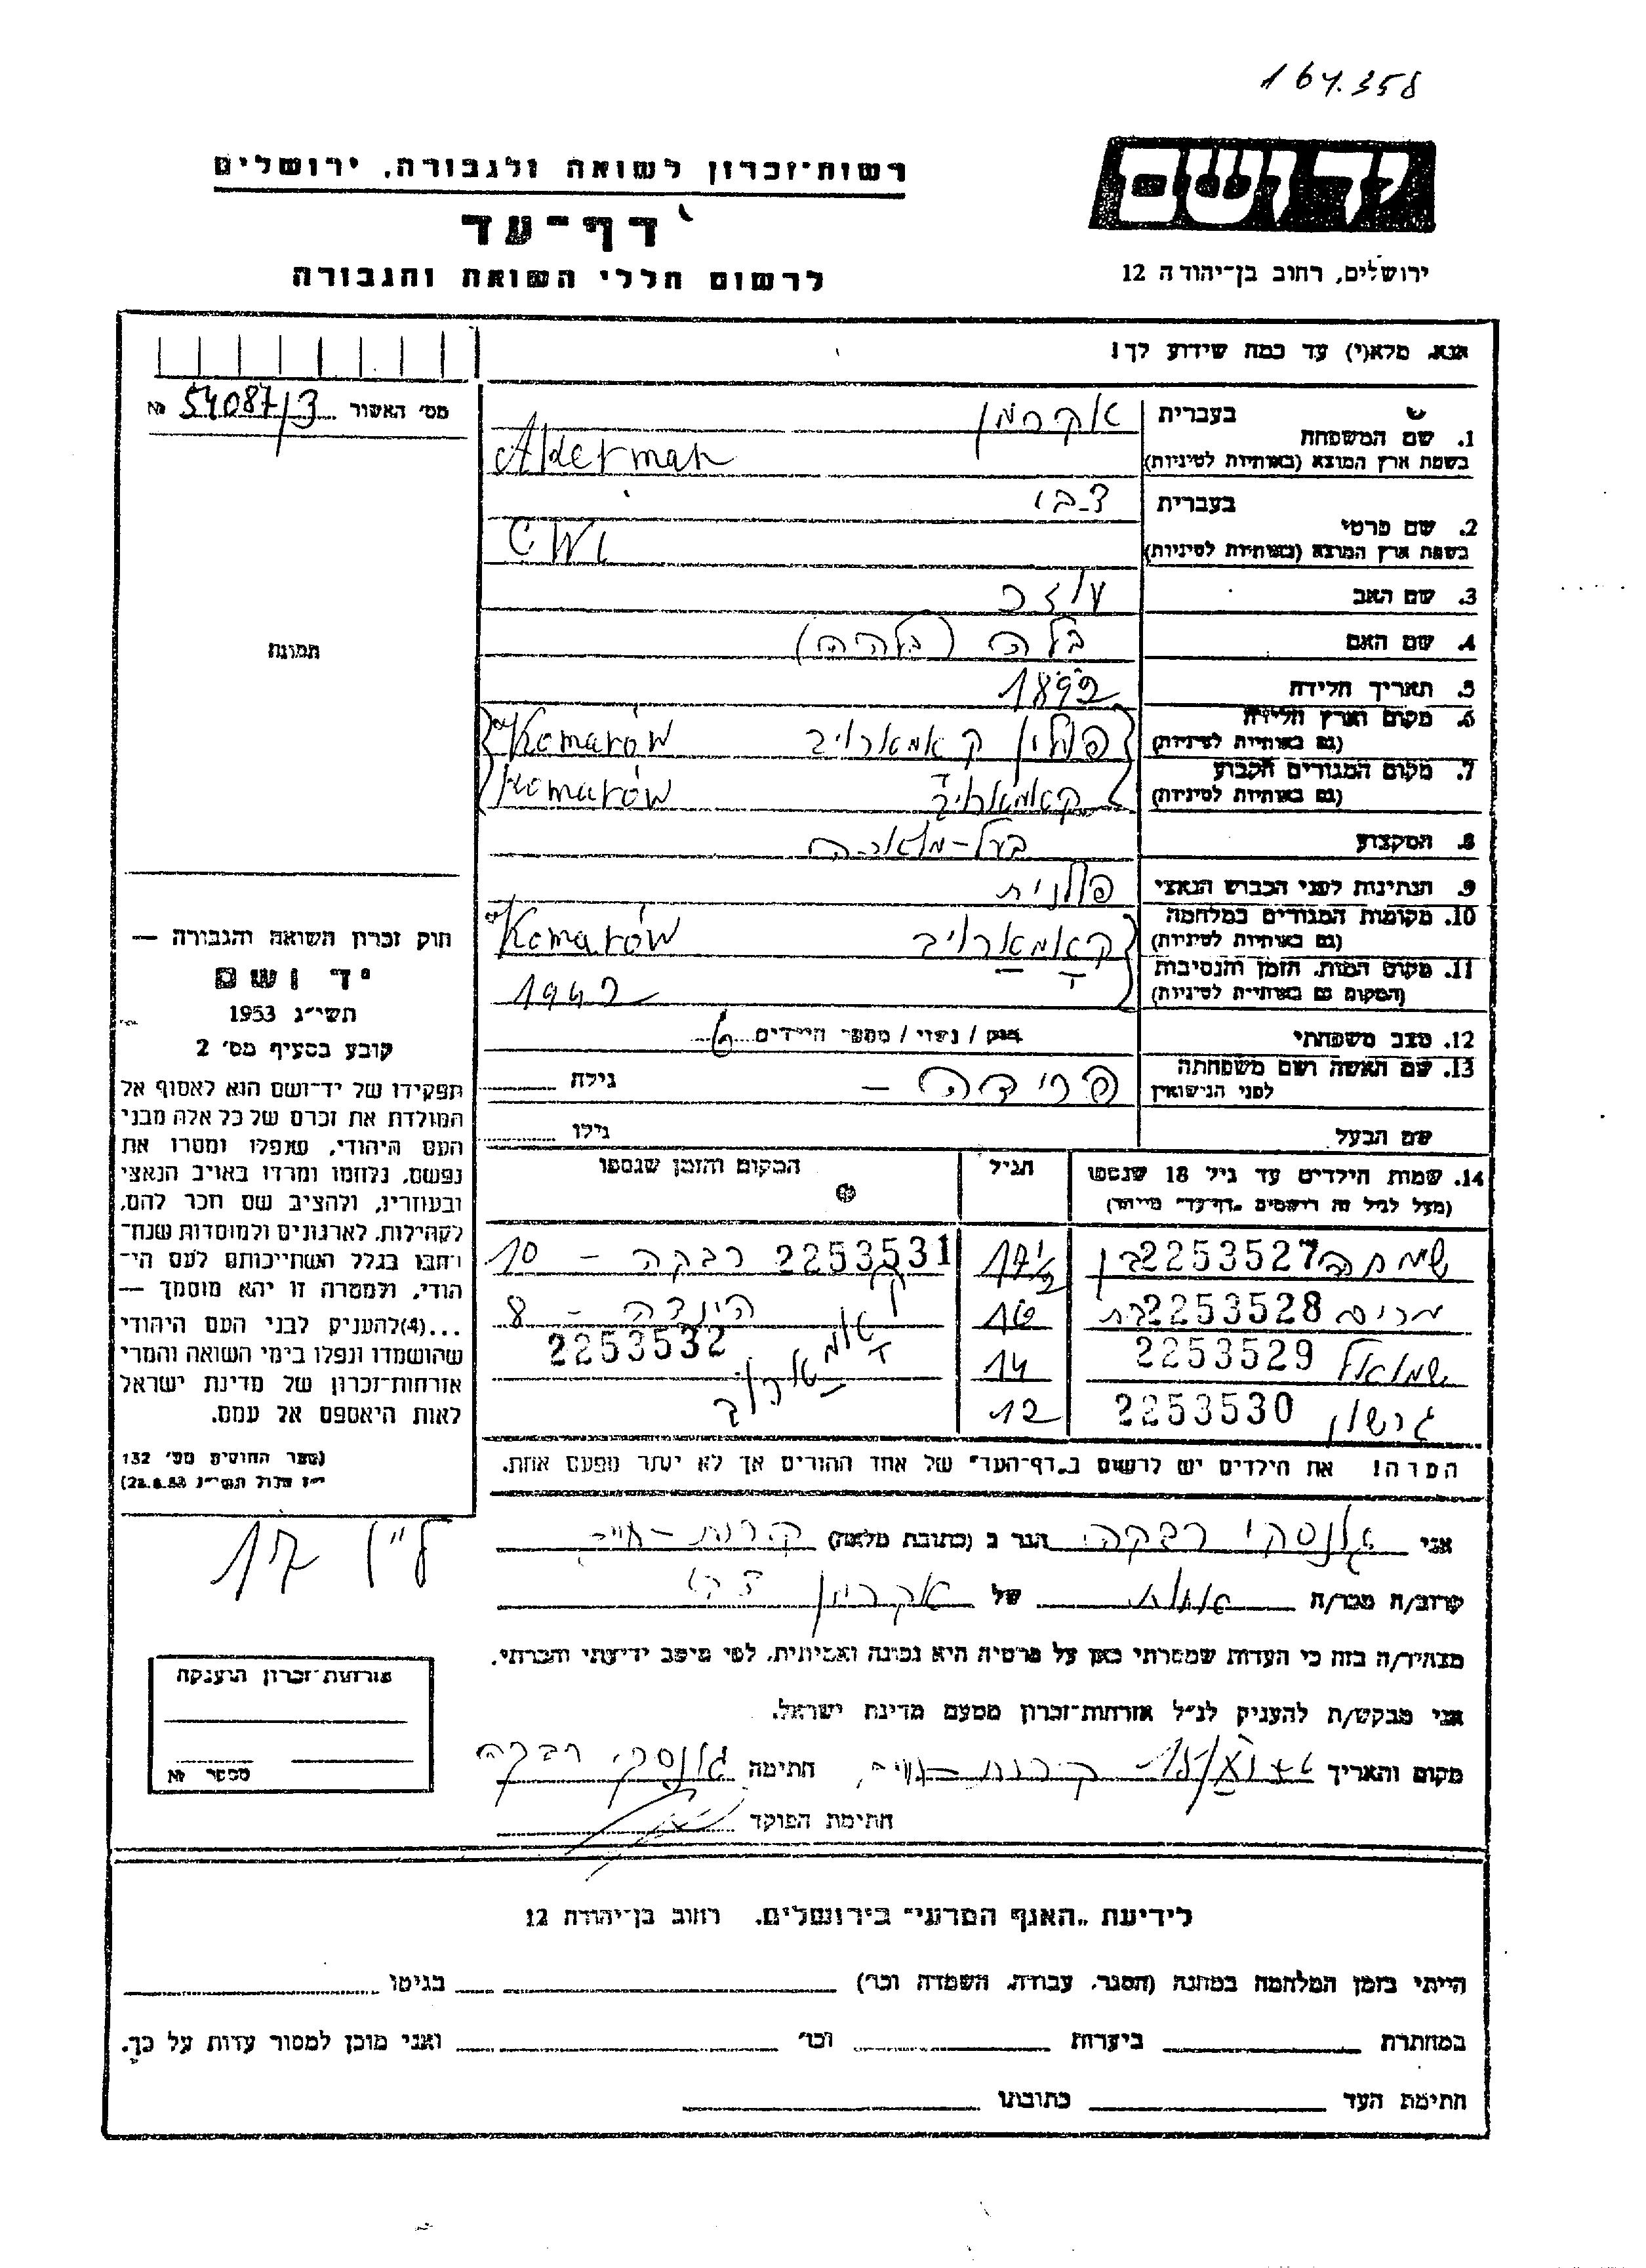 164.358
יד ושם
ירושלים, רחוב בן־יהודה 12
רשות־זכרון לשואה ולגבורה, ירושלים
דף־עד
לרשום חללי השואה והגבורה
אנא, מלא(י) עד כמה שידוע לך!
מס׳ האשור 54087/3 №
1. שם המשפחה
בעברית אקרמן
בשפת ארץ המוצא (באותיות לטיניות) Akerman
2. שם פרטי
בעברית צבי
בשפת ארץ המוצא (באותיות לטיניות) CWI
3. שם האב עוזר
4. שם האם בלה (בלהה)
5. תאריך הלידה 1892
6. מקום וארץ הלידה (גם באותיות לטיניות) פולין קאמארוב Komarów
7. מקום המגורים הקבוע (גם באותיות לטיניות) קאמארוב Komarów
8. המקצוע בעל-מלאכה
9. הנתינות לפני הכבוש הנאצי פולנית
10. מקומות המגורים במלחמה (גם באותיות לטיניות) קאמארוב Komarów
11. מקום המות, הזמן והנסיבות (המקום גם באותיות לטיניות) 1942
12. מצב משפחתי רווק / נשוי / מספר הילדים 6
13. שם האשה ושם משפחתה לפני הנישואין פרידה – גילה
שם הבעל גילו
14. שמות הילדים עד גיל 18 שנספו
(מעל לגיל זה רושמים „דף־עד״ מיוחד)
הגיל
המקום והזמן שנספו
שמחה בן 2253527 17½ 2253531 רבקה – 10
מרים בת 2253528 16 הינדה – 8
שמואל 2253529 14 2253532
גרשון 2253530 12 קאמארוב
הערה! את הילדים יש לרשום ב„דף־העד״ של אחד ההורים אך לא יותר מפעם אחת.
תמונה
חוק זכרון השואה והגבורה —
יד ושם
תשי״ג 1953
קובע בסעיף מס׳ 2
תפקידו של יד־ושם הוא לאסוף אל
המולדת את זכרם של כל אלה מבני
העם היהודי, שנפלו ומסרו את
נפשם, נלחמו ומרדו באויב הנאצי
ובעוזריו, ולהציב שם וזכר להם,
לקהילות, לארגונים ולמוסדות שנח־
רבו בגלל השתייכותם לעם הי־
הודי, ולמטרה זו יהא מוסמך —
...(4) להעניק לבני העם היהודי
שהושמדו ונפלו בימי השואה והמרי
אזרחות־זכרון של מדינת ישראל
לאות היאספם אל עמם.
(ספר החוקים מס׳ 132
י״ז אלול תשי״ג 28.8.53)
אני רבקה הגר ב (כתובת מלאה) קרית-
קרוב/ה מכר/ה של אקרמן צבי
מצהיר/ה בזה כי העדות שמסרתי כאן על פרטיה היא נכונה ואמיתית, לפי מיטב ידיעתי והכרתי.
אני מבקש/ת להעניק לנ״ל אזרחות־זכרון מטעם מדינת ישראל.
מקום והתאריך קרית- חתימה רבקה
חתימת הפוקד
אזרחות־זכרון הוענקה
מספר №
לידיעת „האגף המדעי״ בירושלים, רחוב בן־יהודה 12
הייתי בזמן המלחמה במחנה (הסגר, עבודה, השמדה וכו׳) בגיטו
במחתרת ביערות וכו׳ ואני מוכן למסור עדות על כך.
חתימת העד כתובתו